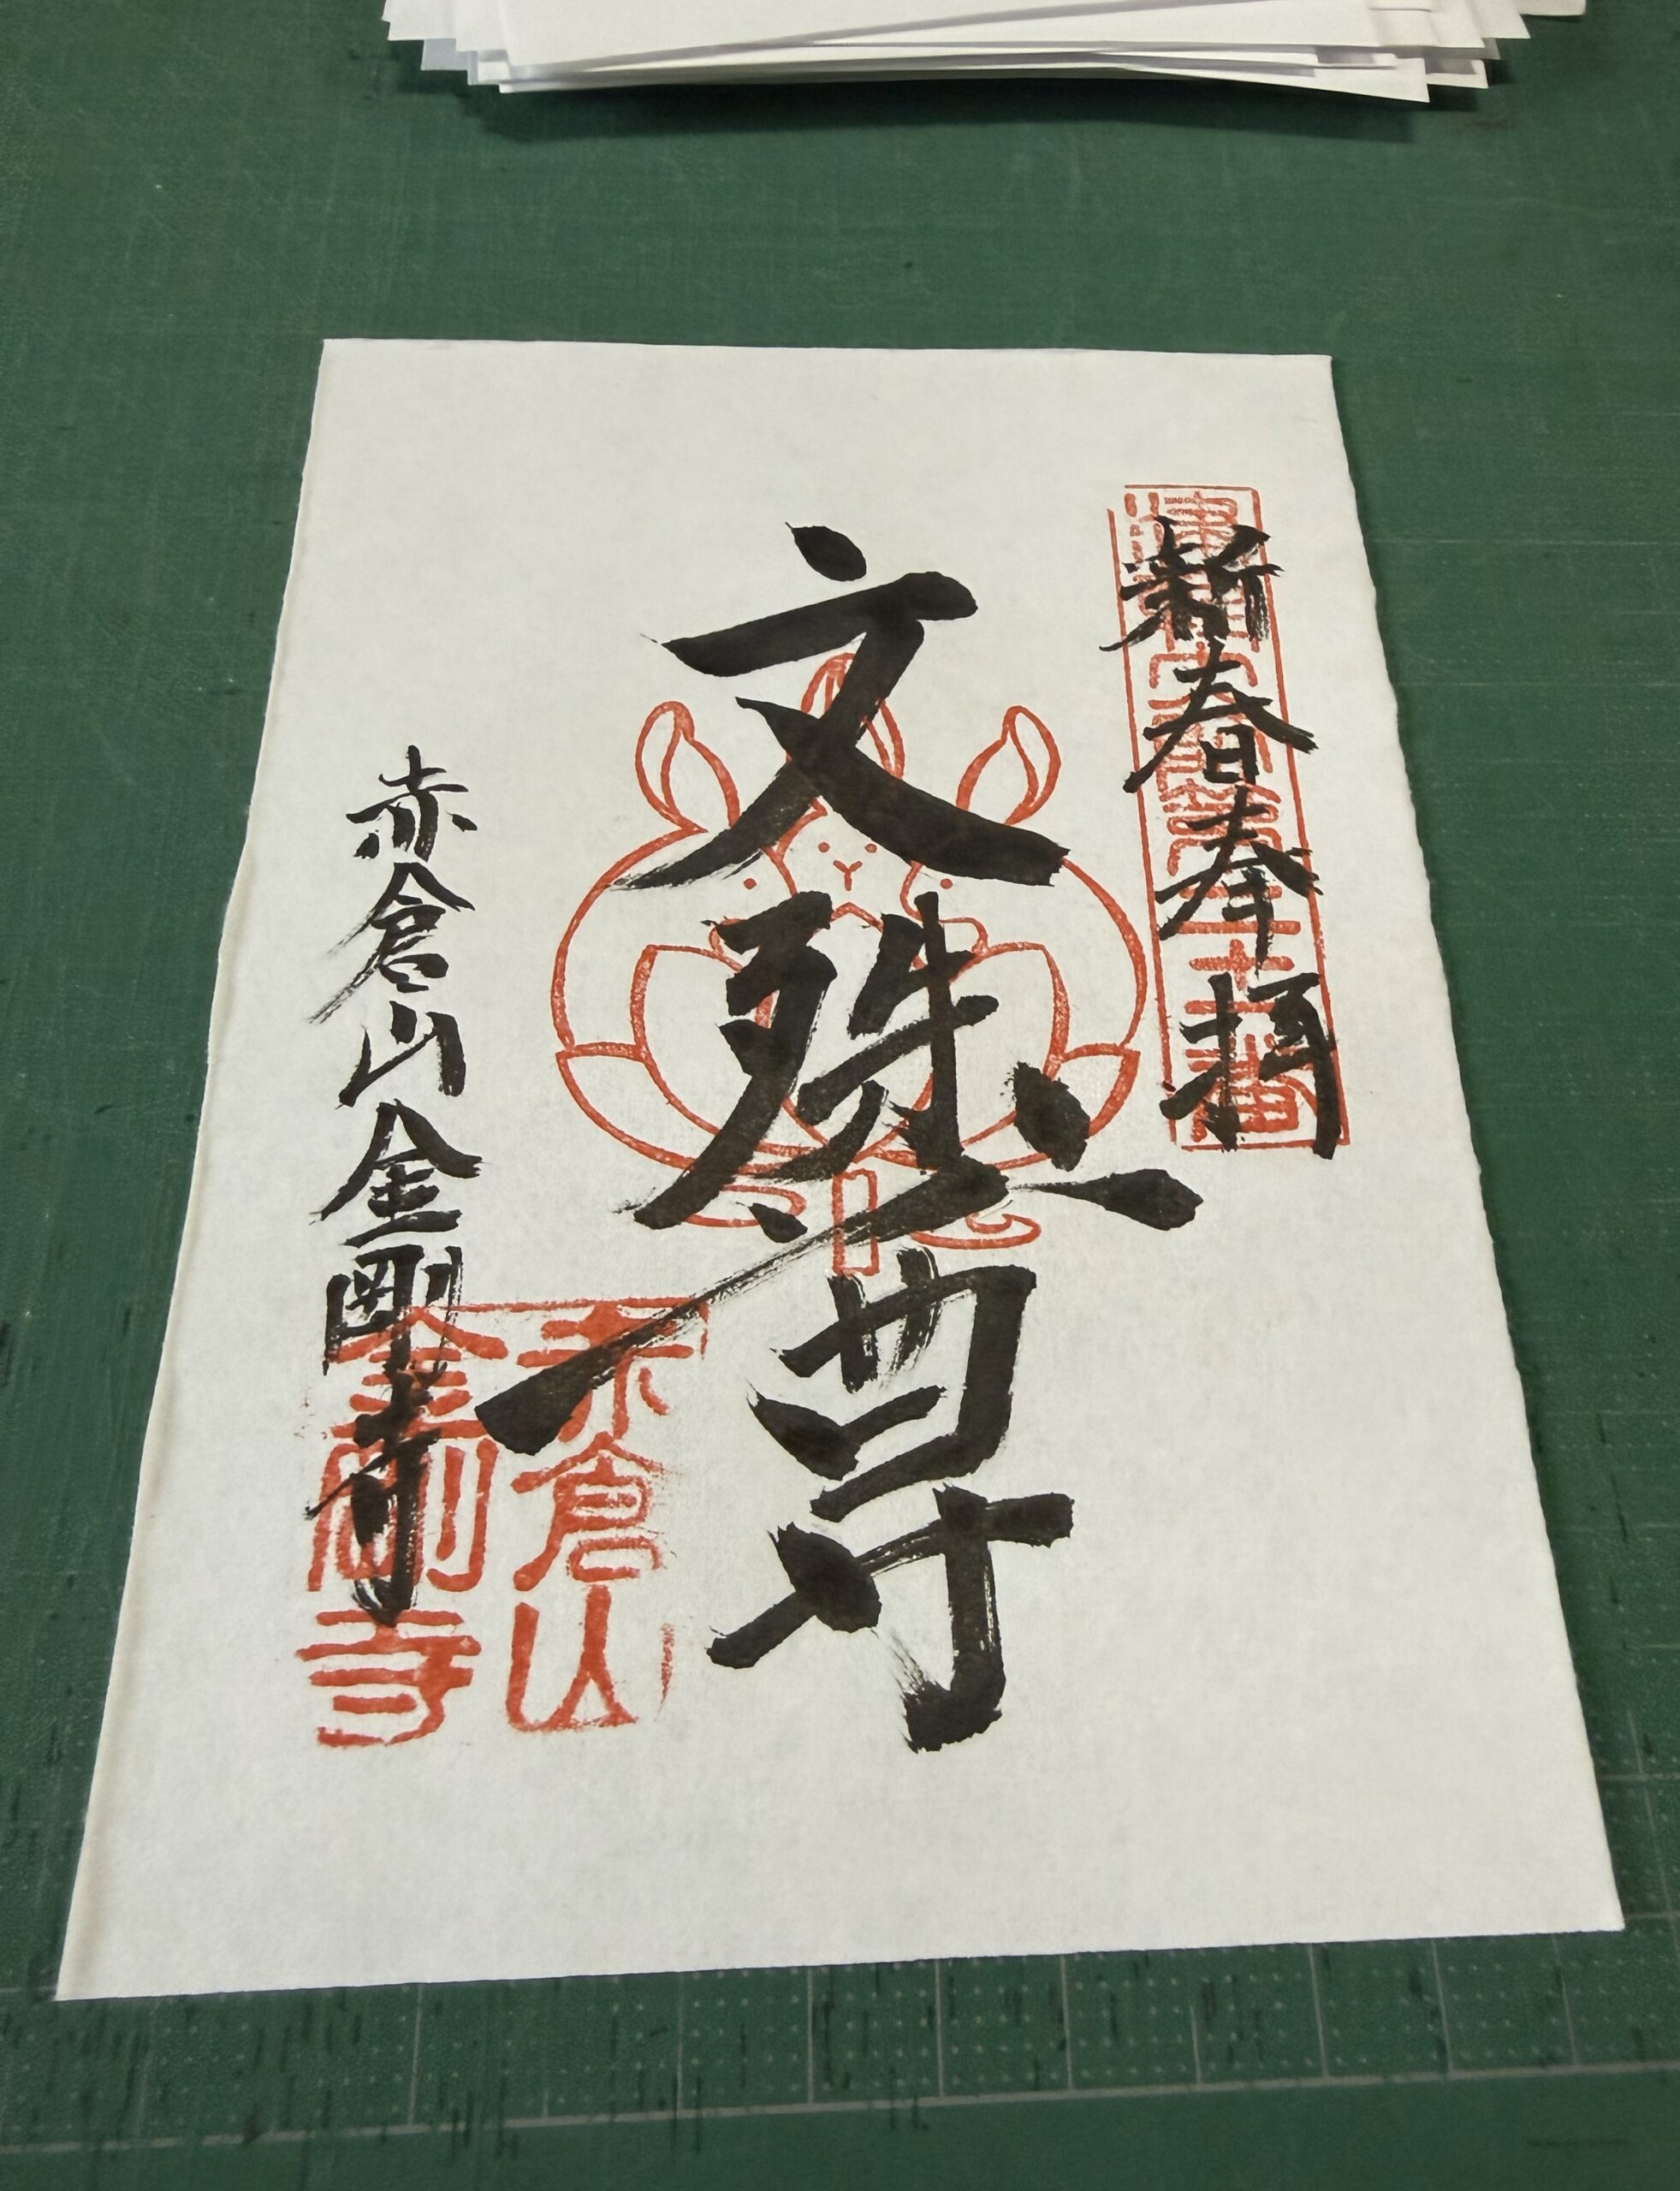 新春奉拝
文殊尊
赤倉山金剛寺
赤倉山
金剛寺